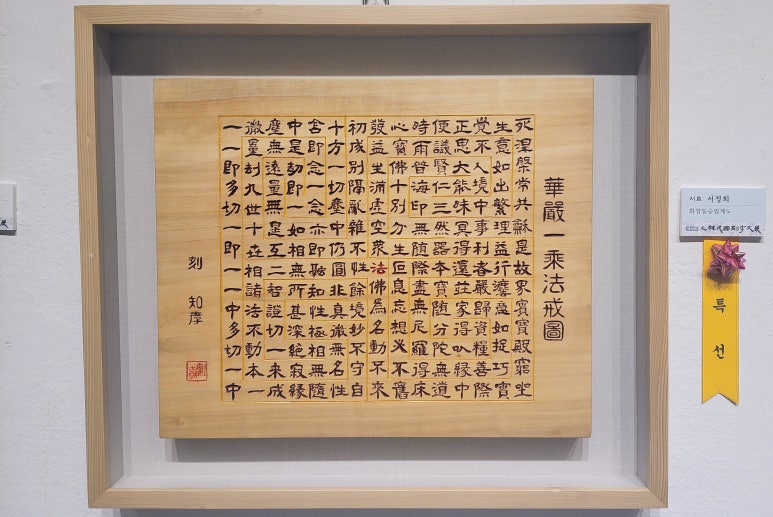 華嚴一乘法戒圖
死涅槃常共龢是故界實寶殿窮坐
生意如出繁理益行法意如捉巧實
覺不人境中事利者嚴歸資糧善際
正思大能昧冥得還莊家得以緣中
便議賢仁三然器本寶随分陀無道
時雨普海印無随際盡無尼羅得床
心寶佛十別分生叵息忘想必不舊
發益生滿虛空衆法佛爲名動不來
初成別隔亂雜不性餘境妙不守自
十方一切塵中仍圓非真微無名性
含即念一念亦即融知性極相無隨
中是劫即一如相無所甚深絕寂緣
塵無遠量無是互二智證切一來成
微量劫九世十世相諸法不動本一
一一即多切一即一一中多切一中
刻 知孝
지효 서정희
화엄일승법계도
특선